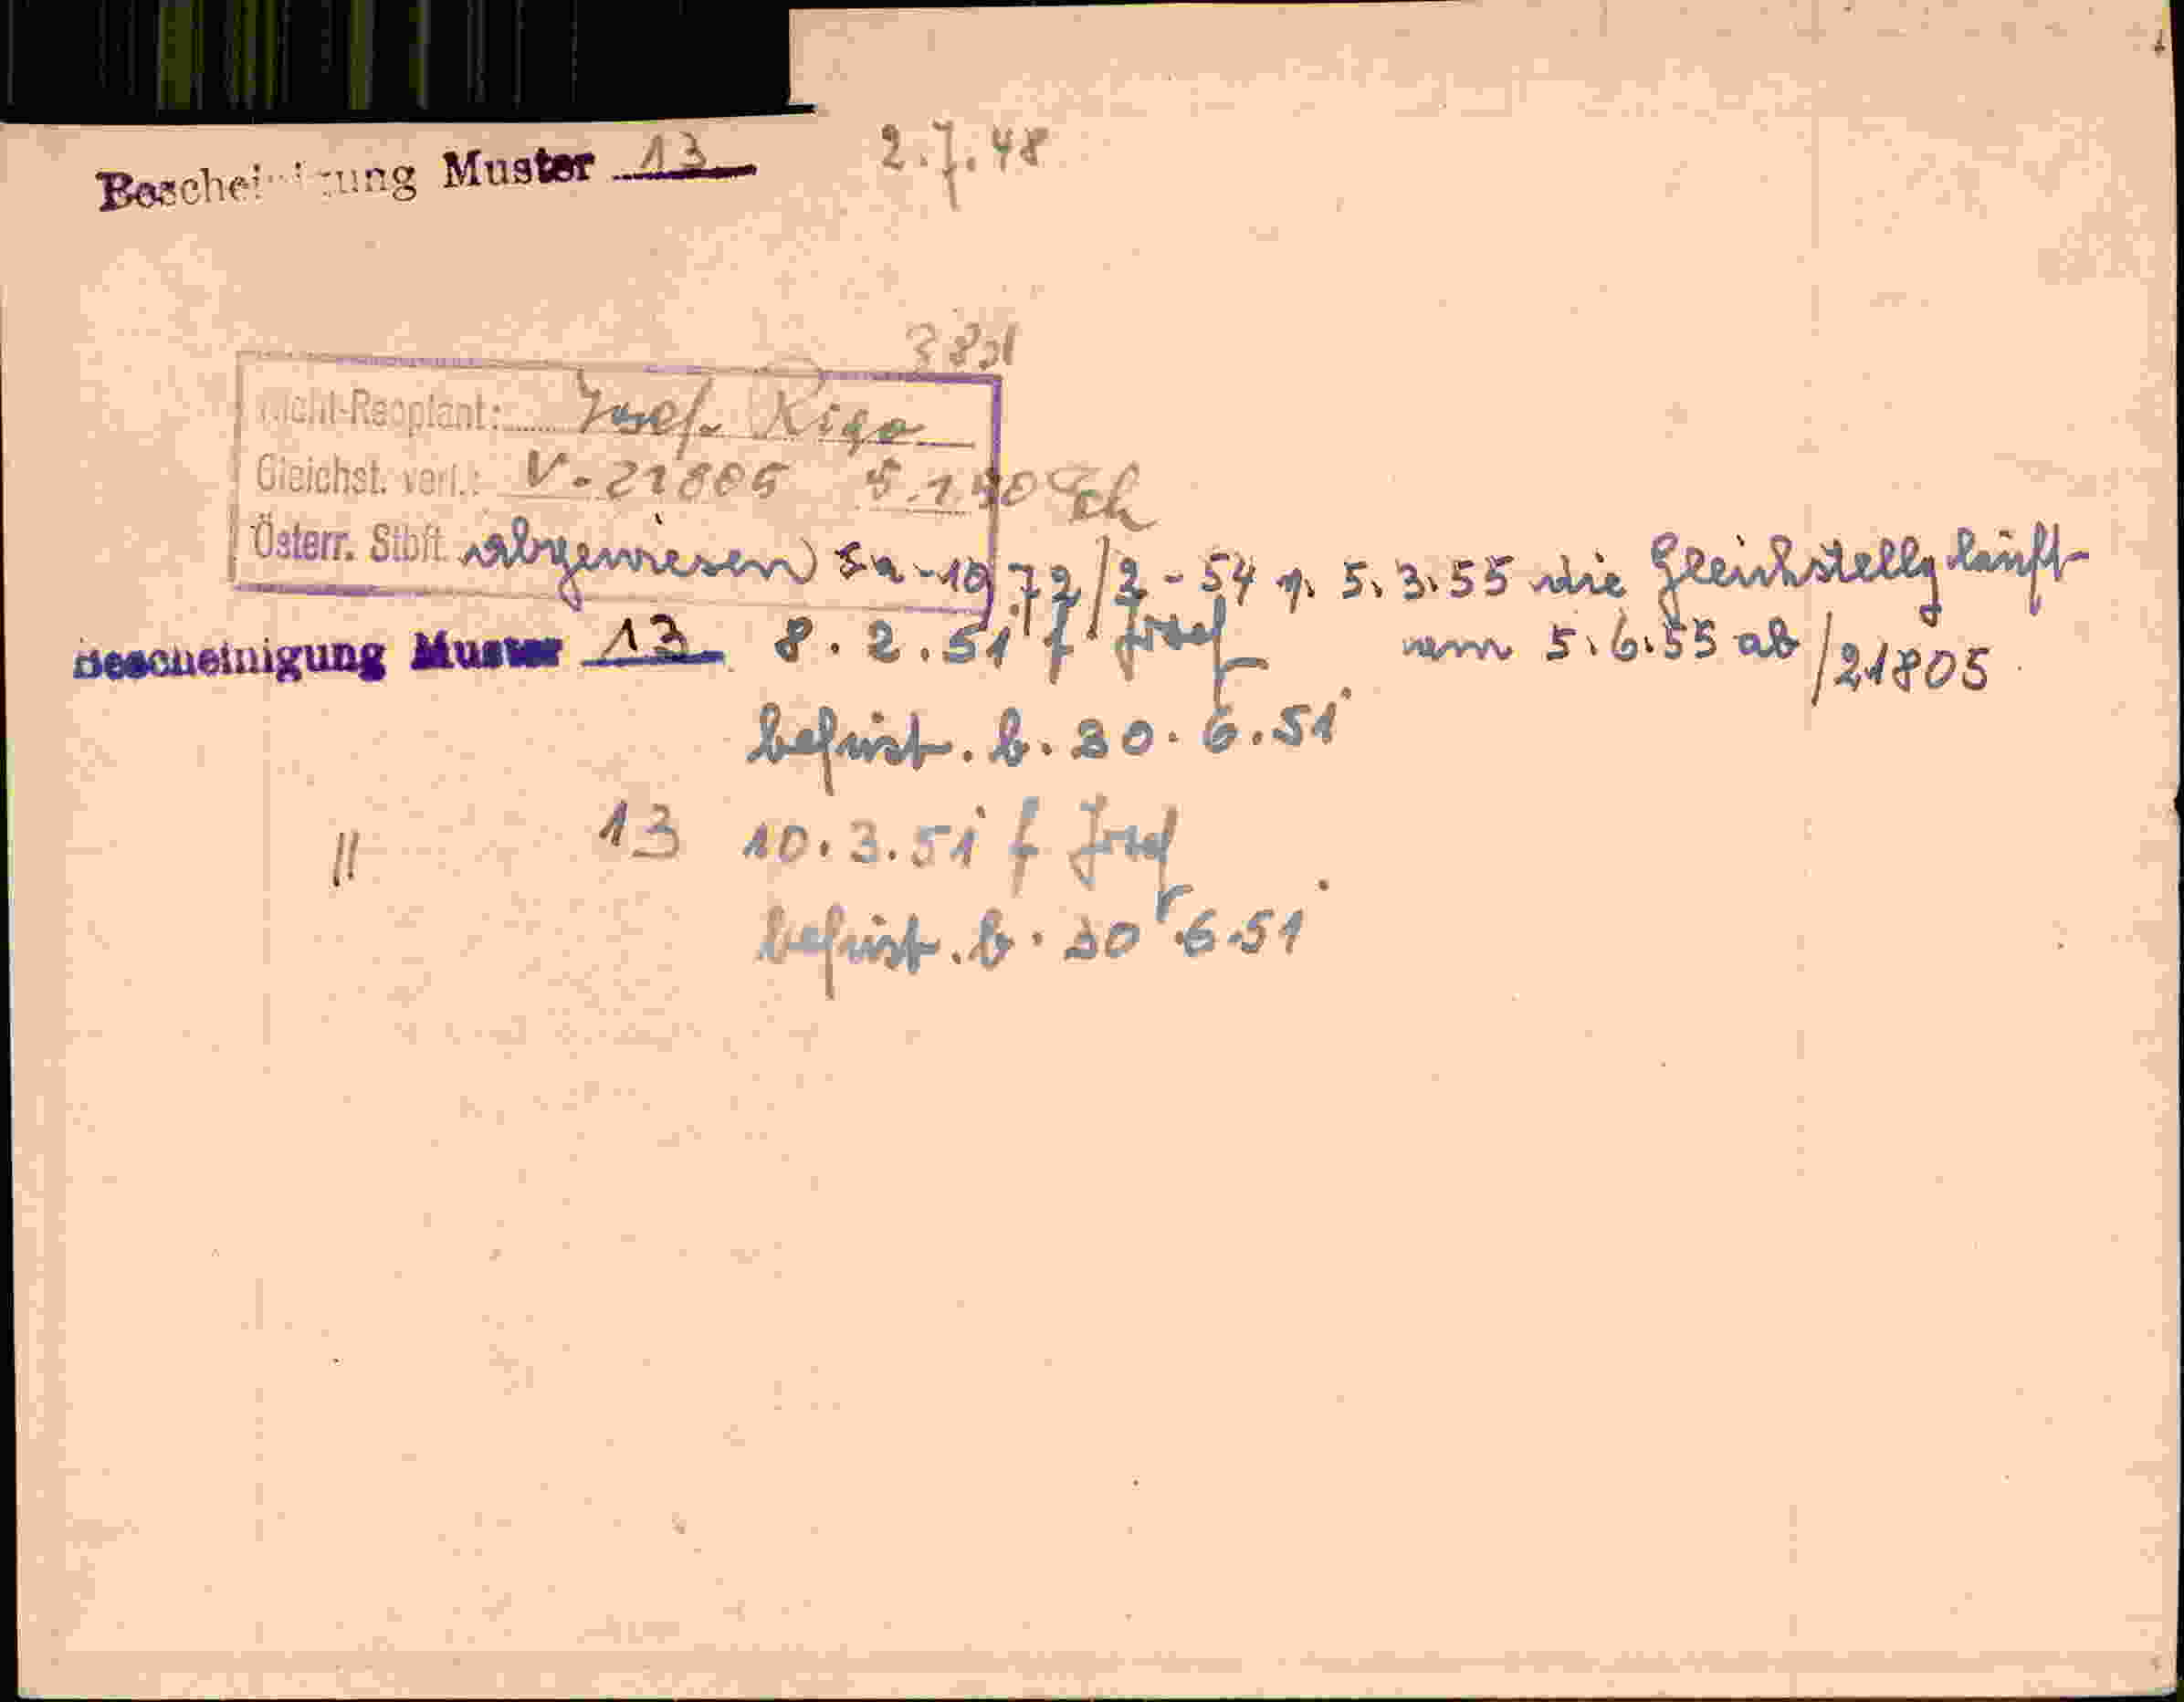 Bescheinigung Muster 13 2.7.48
Nicht-Reoptant: Josef Rigo
Gleichst. verl.: V-21805 5.1.50
Österr. Stbft abgewiesen Sa-1072/2-54 v. 5.3.55 die Gleichstellg läuft
am 5.6.55 ab/21805
Bescheinigung Muster 13 8.2.51 f Josef
befrist. b. 30.6.51
" 13 10.3.51 f Josef
befrist. b. 30.6.51